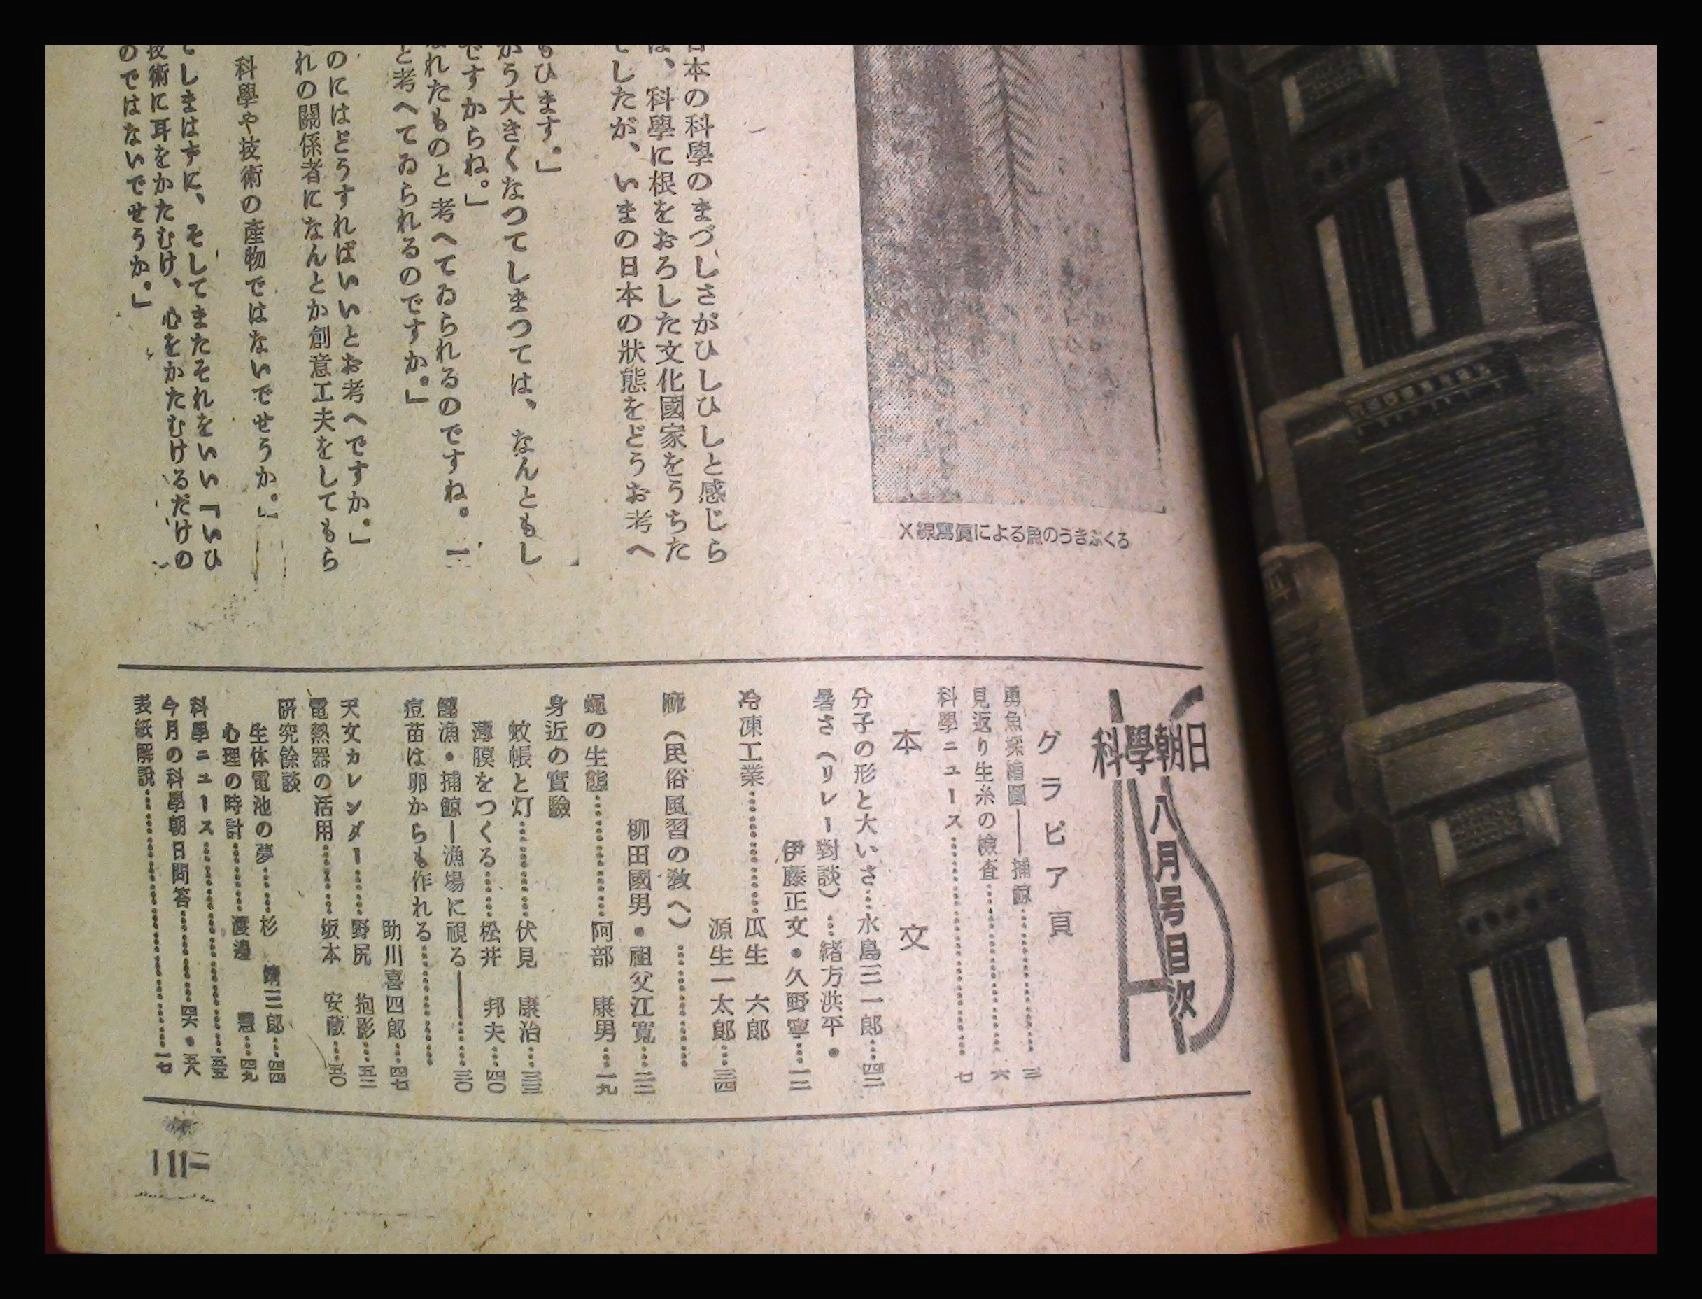 日本の科學のまづしさがひしひしと感じら
は、科學に根をおろした文化國家をうちた
でしたが、いまの日本の狀態をどうお考へ
もひます。」
がう大きくなつてしまつては、なんともし
ですからね。」
なれたものと考へてゐられるのですね。一
と考へてゐられるのですか。」
のにはどうすればいいとお考へですか。」
れの關係者になんとか創意工夫をしてもら
科學や技術の産物ではないでせうか。」
てしまはずに、そしてまたそれをいい「いひ
技術に耳をかたむけ、心をかたむけるだけの
のではないでせうか。」
X線寫眞による魚のうきぶくろ
科學朝日
八月号目次
グラビア頁
勇魚採繪圖――捕鯨……三
見返り生糸の檢査……六
科學ニュース……七
本文
分子の形と大いさ…水島三一郎…四二
暑さ（リレー對談）…緒方洪平・
伊藤正文・久野寧…一二
冷凍工業……瓜生 六郎
源生一太郎…三四
麻（民俗風習の敎へ）……
柳田國男・祖父江寬…二三
蠅の生態……阿部 康男…一九
身近の實驗
蚊帳と灯……伏見 康治…三三
薄膜をつくる……松井 邦夫…四〇
鰹漁・捕鯨―漁場に視る――…三〇
痘苗は卵からも作れる……
助川喜四郎…四七
天文カレンダー……野尻 抱影…五二
電熱器の活用……坂本 安藏…五〇
硏究餘談
生体電池の夢……杉 靖三郎…四四
心理の時計……渡邊 慧…四九
科學ニュース……五五
今月の科學朝日問答……四六・五八
表紙解說……一七